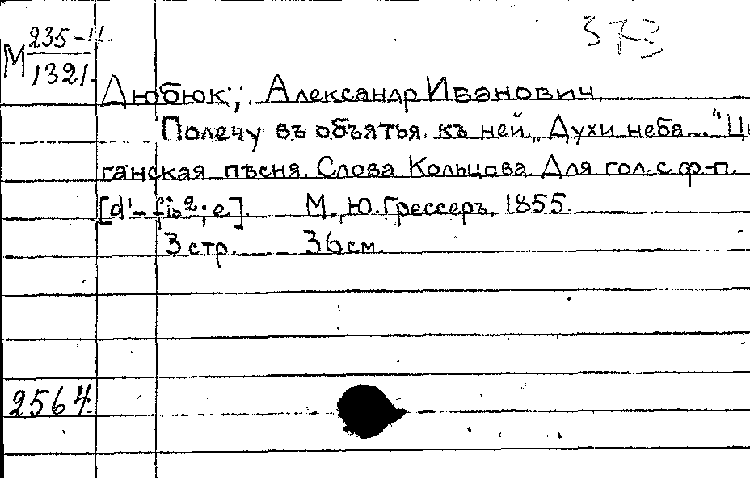 373
М 235-II
1321.
Дюбюк, Александр Иванович
Полечу въ объятья къ ней „Духи неба..." Цы
ганская пѣсня. Слова Кольцова. Для гол. с ф-п.
[d'-fis²; e]. М., Ю. Грессеръ, 1855.
3 стр. 36 см.
2564.